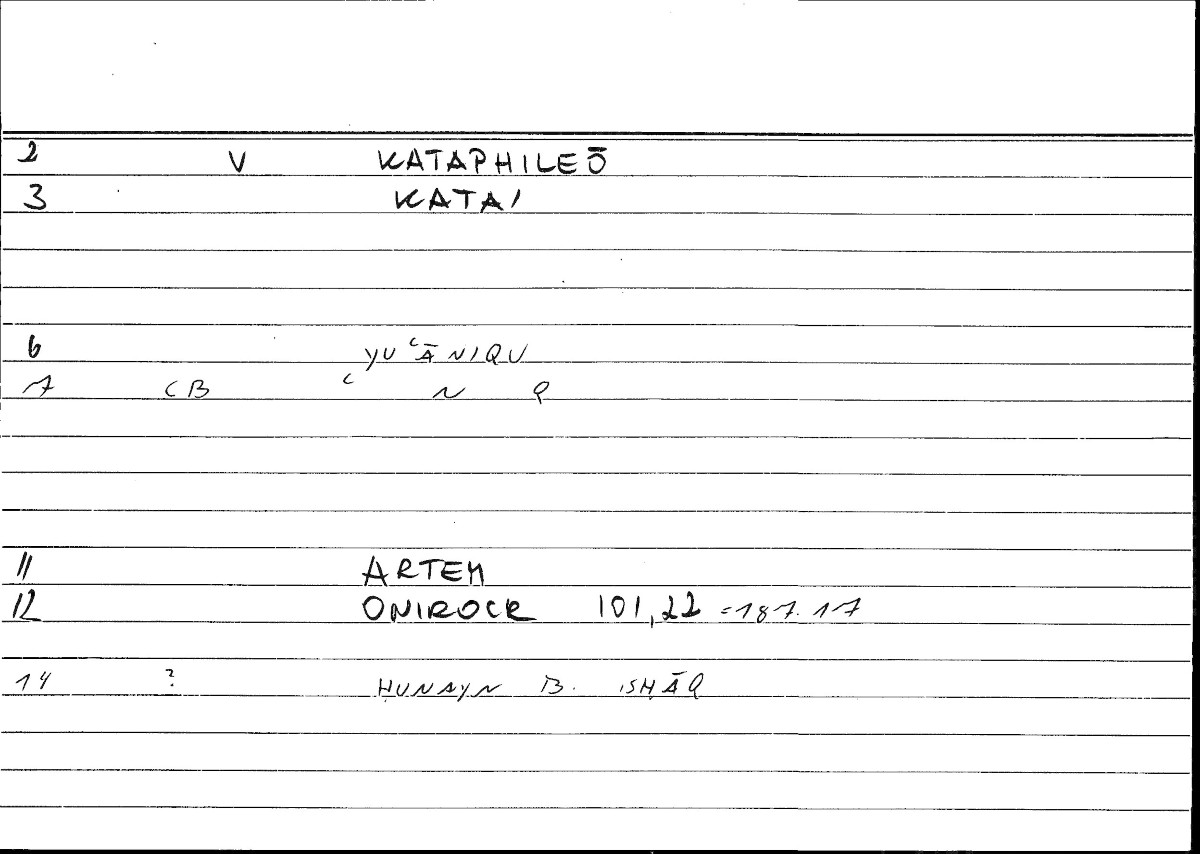 2 V KATAPHILEŌ
3 KATAI
6 YUʿĀNIQU
7 CB ʿ N Q
11 ARTEM
12 ONIROCR 101,22 =187.17
14 ? ḤUNAYN B. ISḤĀQ